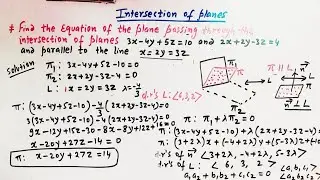 Intersection of planes
* Find the Equation of the plane passing through the
intersection of planes 3x-4y+5z=10 and 2x+2y-3z=4
and parallel to the line x=2y=3z
Solution
π₁: 3x-4y+5z-10=0
π₂: 2x+2y-3z-4=0
L: x=2y=3z
d.r's of L: <6,3,2>
π: (3x-4y+5z-10)-4/3(2x+2y-3z-4)=0
3(3x-4y+5z-10)-4(2x+2y-3z-4)=0
9x-12y+15z-30-8x-8y+12z+16=0
x-20y+27z-14=0
π: x-20y+27z=14
π₁
π₂
π ∥ L
n⃗ ⊥ L
π: π₁+λπ₂=0
π: (3x-4y+5z-10)+λ(2x+2y-3z-4)=0
d.r's of n⃗ <3+2λ, -4+2λ, 5-3λ>
d.r's of L: < 6, 3, 2 >
a₁a₂+b₁b₂+c₁c₂=0